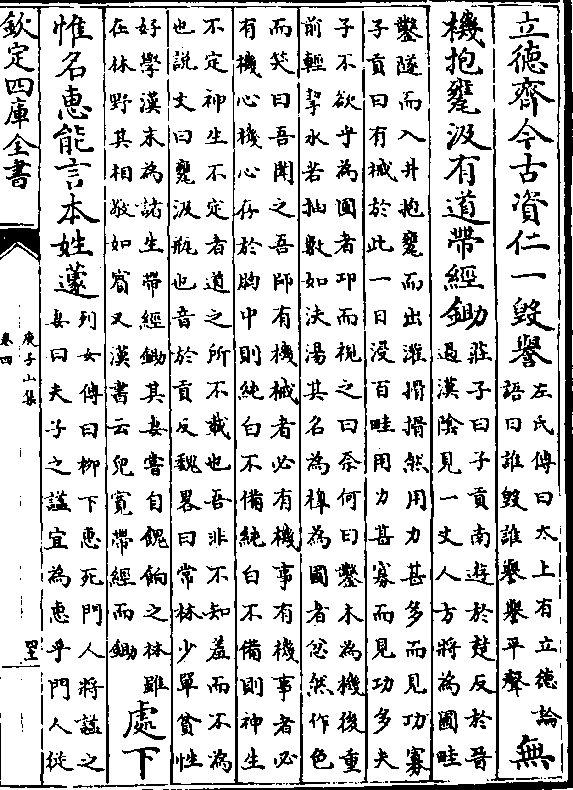 立德齊今古資仁一毀譽
左氏傳曰太上有立德論
語曰誰毀誰譽譽平聲
無
機抱甕汲有道帶經鋤
莊子曰子貢南遊於楚反於晉
過漢陰見一丈人方將為圃畦
鑿隧而入井抱甕而出灌搰搰然用力甚多而見功寡
子貢曰有械於此一日浸百畦用力甚寡而見功多夫
子不欲乎為圃者卬而視之曰奈何曰鑿木為機後重
前輕挈水若抽數如泆湯其名為槔為圃者忿然作色
而笑曰吾聞之吾師有機械者必有機事有機事者必
有機心機心存於胸中則純白不備純白不備則神生
不定神生不定者道之所不載也吾非不知羞而不為
也說文曰甕汲瓶也音於貢反魏畧曰常林少單貧性
好學漢末為諸生帶經鋤其妻嘗自餽餉之林雖
在林野其相敬如賓又漢書云兒寬帶經而鋤
處下
惟名惠能言本姓蘧
列女傳曰柳下惠死門人將誄之
妻曰夫子之諡宜為惠乎門人從
欽定四庫全書
庾子山集
卷四